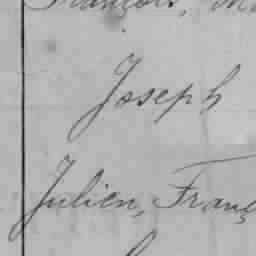 Joseph
Julien, Franç